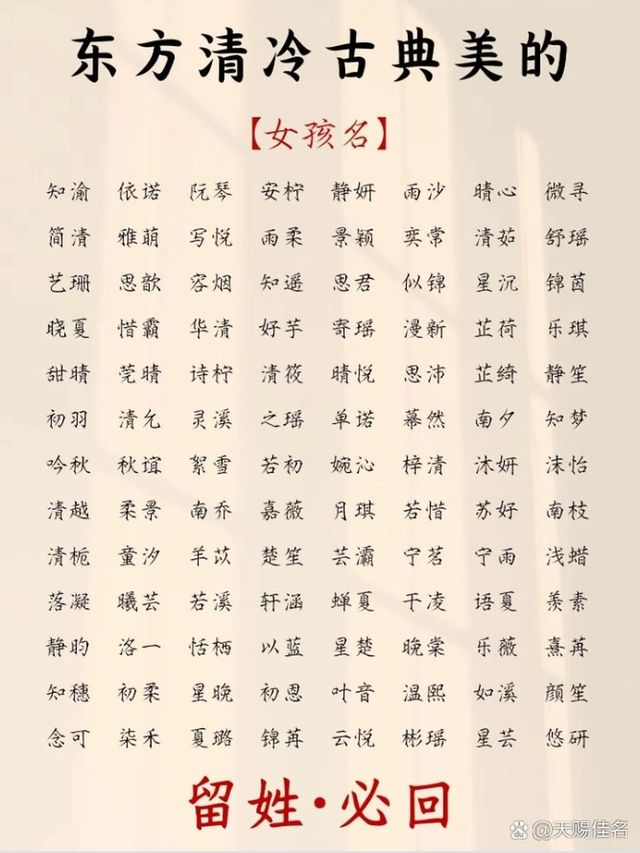 东方清冷古典美的
【女孩名】
知渝 依诺 阮琴 安柠 静妍 雨沙 晴心 微寻
简清 雅萌 写悦 雨柔 景颖 奕常 清茹 舒瑶
艺珊 思歆 容烟 知遥 思君 似锦 星沉 锦茵
晓夏 惜霸 华清 好芋 寄瑶 漫新 芷荷 乐琪
甜晴 莞晴 诗柠 清筱 晴悦 思沛 芷绮 静笙
初羽 清允 灵溪 之瑶 单诺 蓦然 南夕 知梦
吟秋 秋谊 絮雪 若初 婉沁 梓清 沐妍 沫怡
清越 柔景 南乔 嘉薇 月琪 若惜 苏好 南枝
清栀 童汐 羊苡 楚笙 芸灞 宁茗 宁雨 浅蜡
落凝 曦芸 若溪 轩涵 蝉夏 干凌 语夏 羡素
静昀 洛一 恬栖 以蓝 星楚 晚棠 乐薇 熹苒
知穗 初柔 星晚 初恩 叶音 温熙 如溪 颜笙
念可 柒禾 夏璐 锦苒 云悦 彬瑶 星芸 悠研
留姓·必回
@天赐佳名